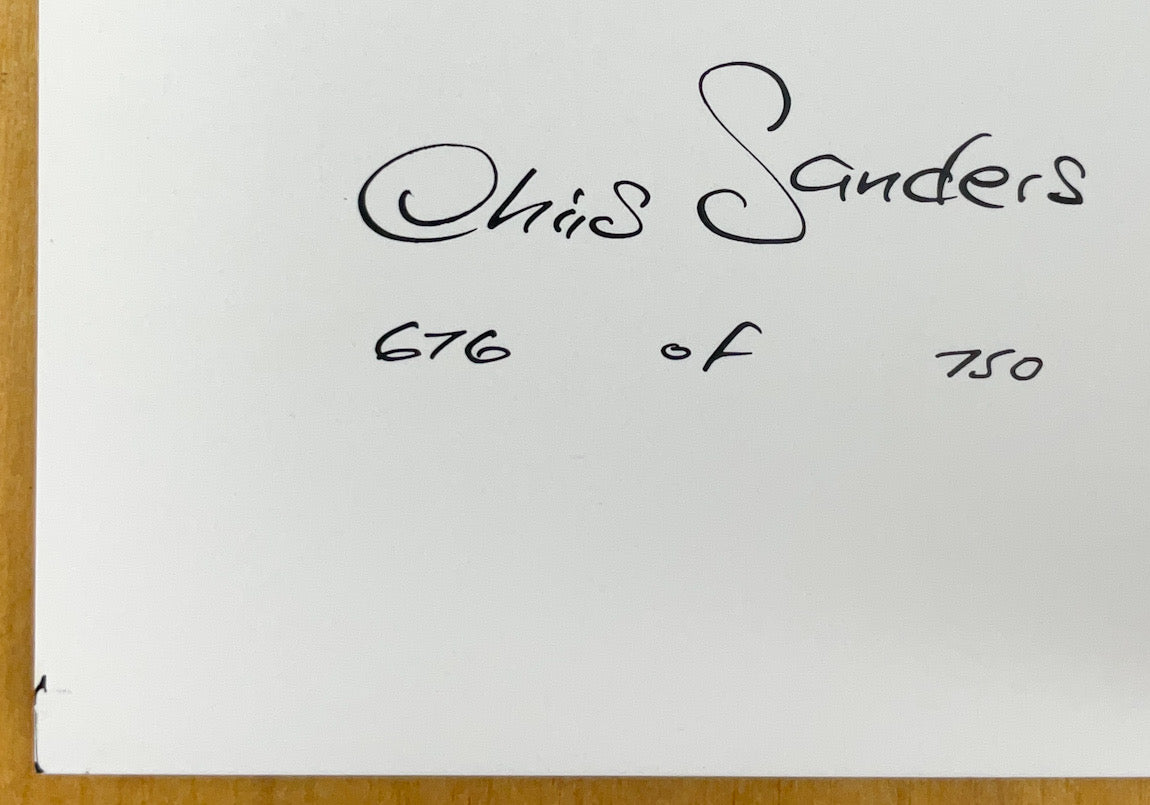 Chris Sanders
676 of 750